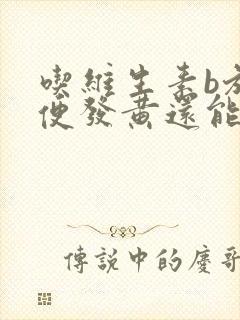 喫維生素b方
便發黃還能
傳說中的慶哥